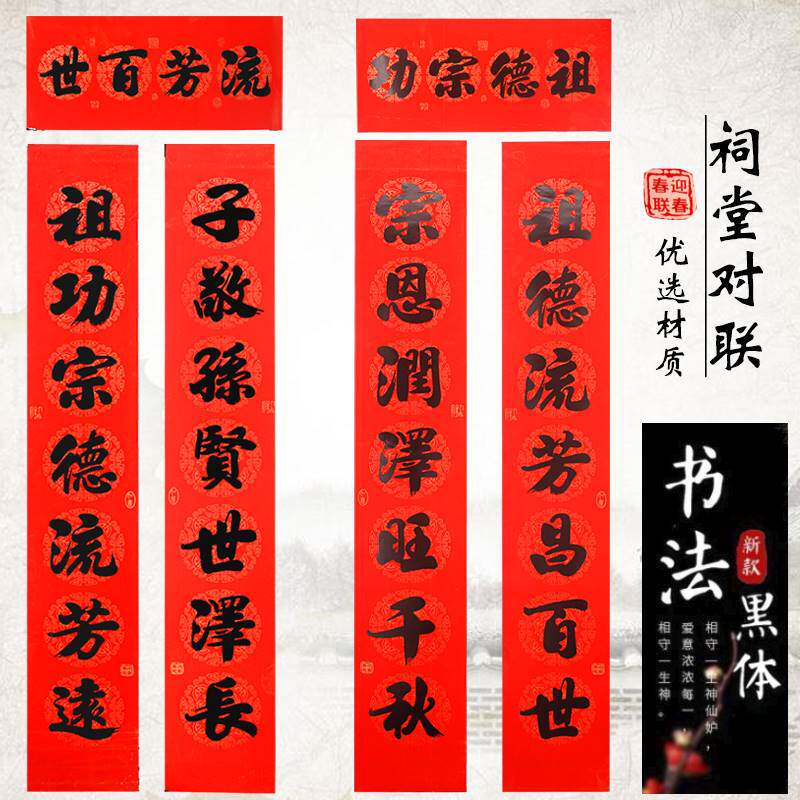 流芳百世
祖德宗功
祖功宗德流芳遠
子敬孫賢世澤長
祖德流芳昌百世
宗恩潤澤旺千秋
祠堂对联
迎春
春联
优选材质
书法
新款
黑体
相守一生神仙妒，
爱意浓浓每一，
相守一生神。